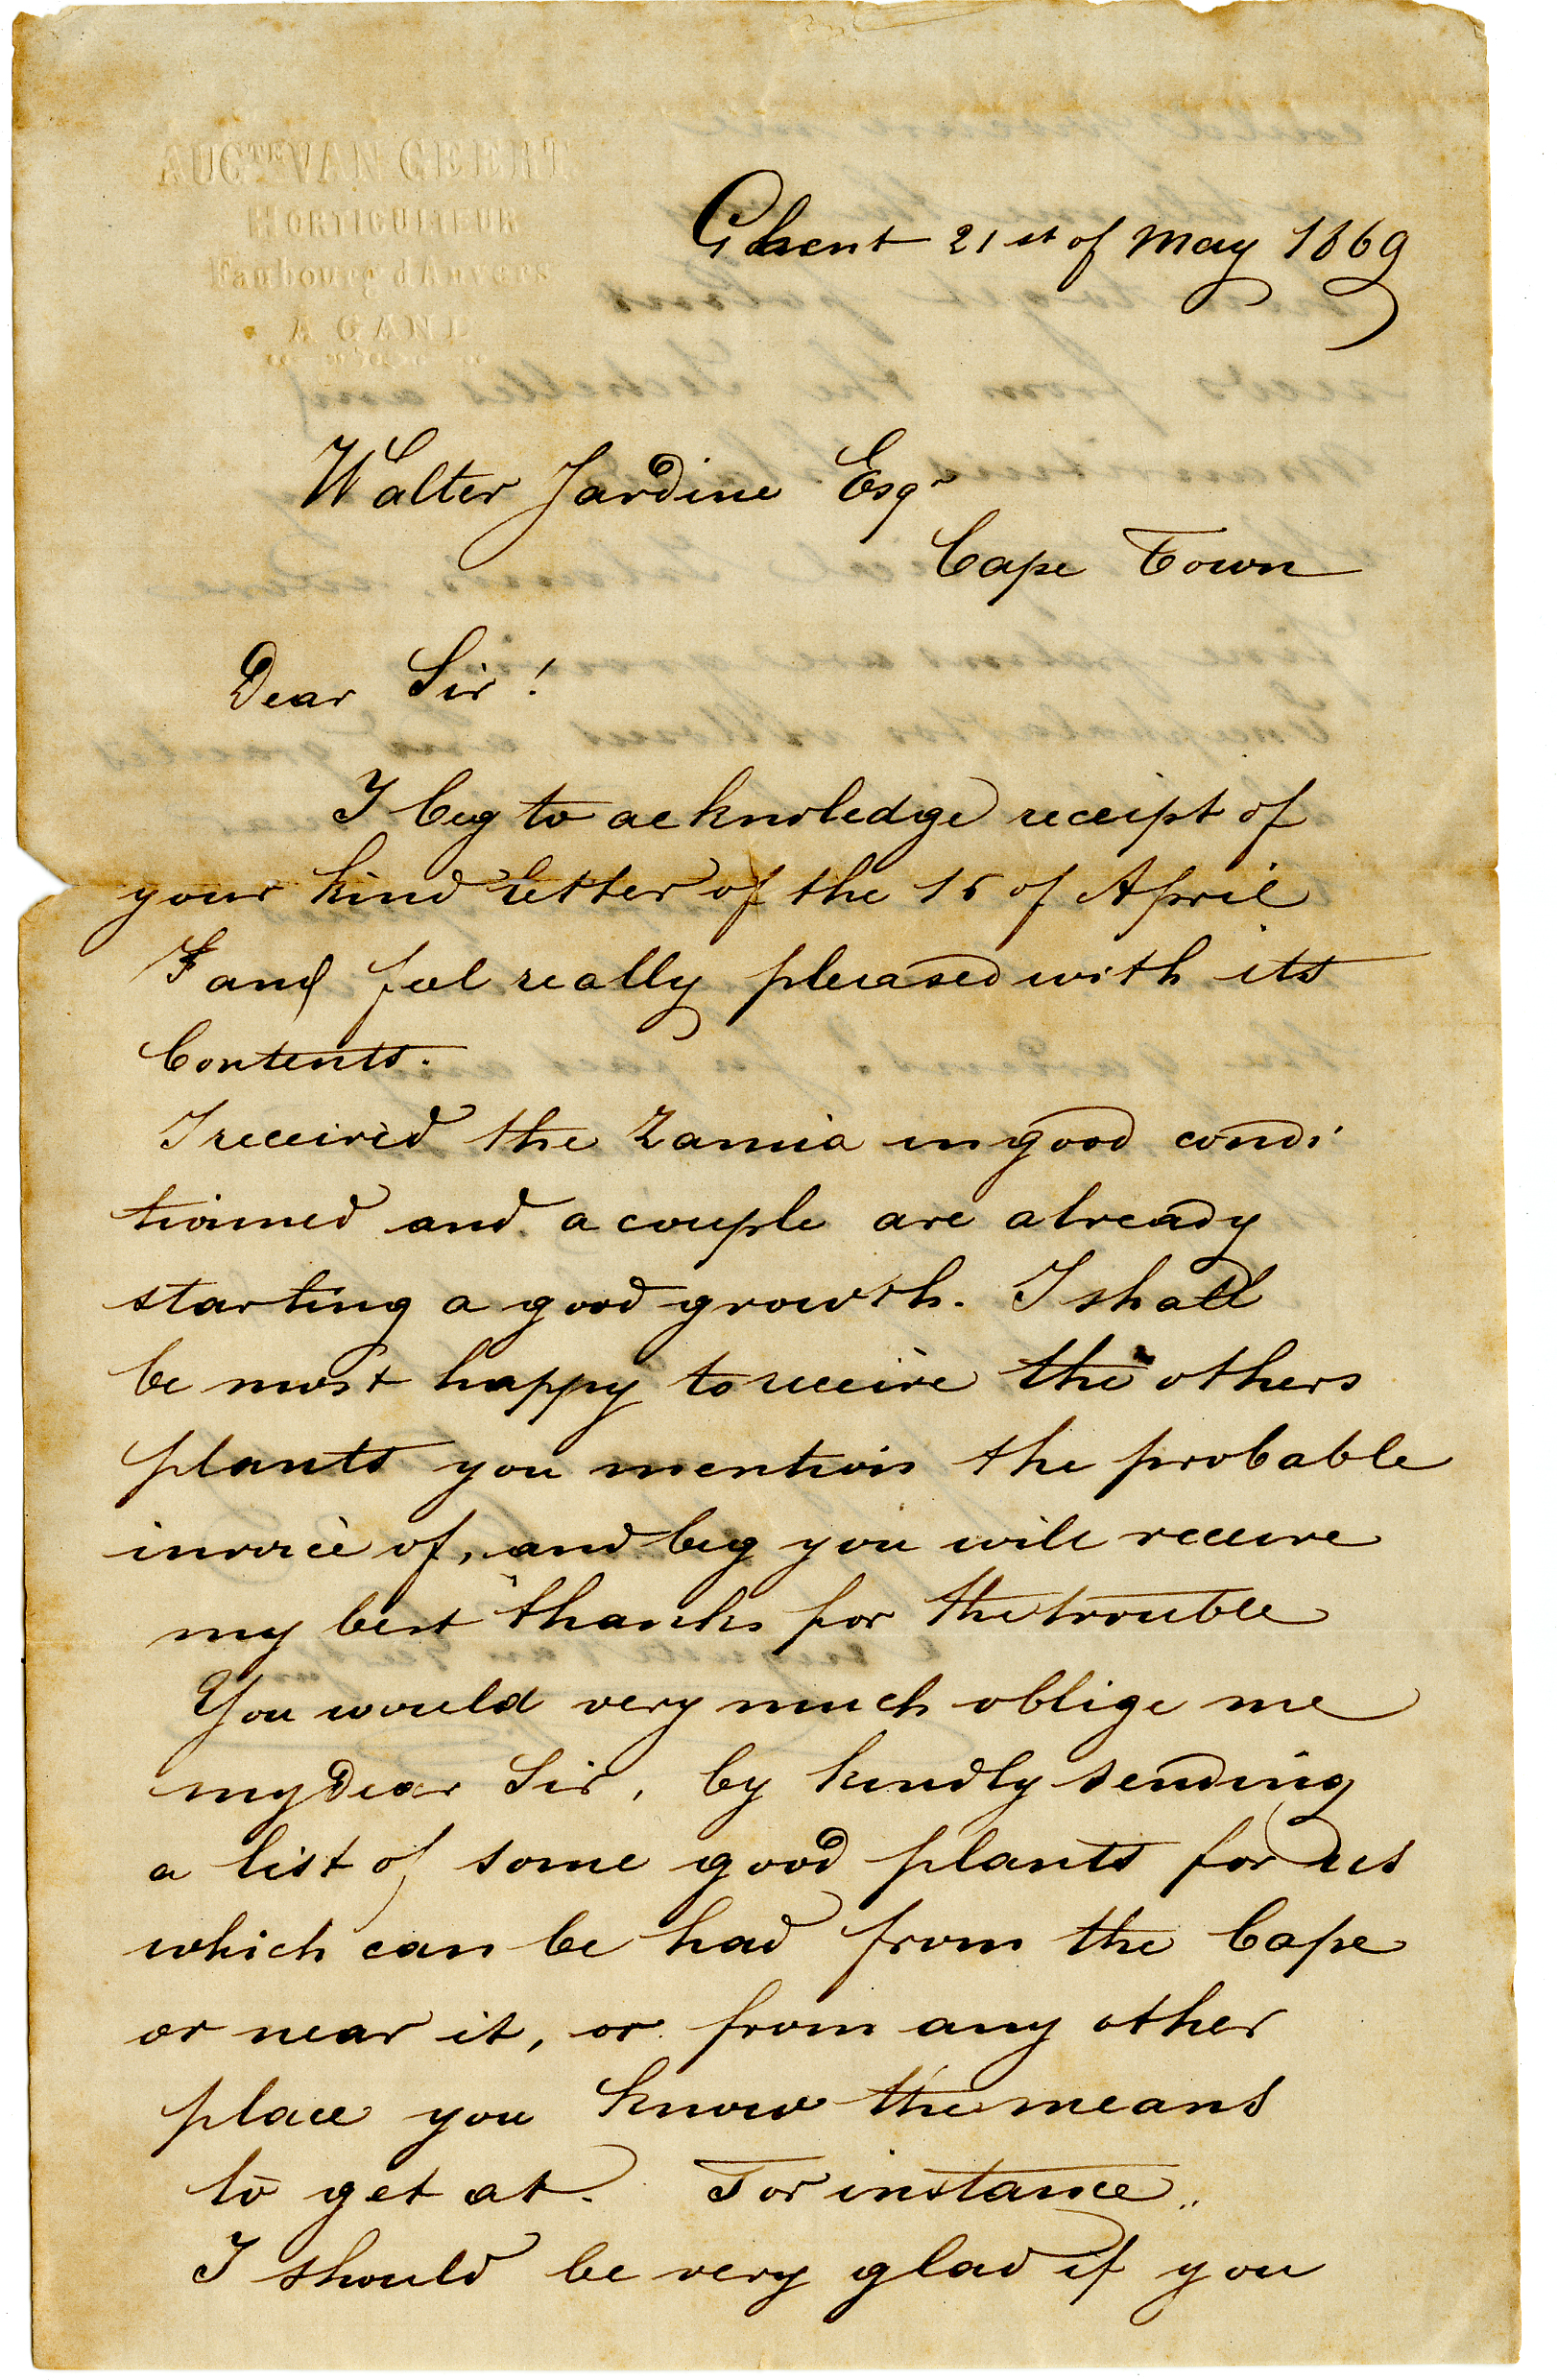 AUG^TE VAN GEERT
HORTICULTEUR
Faubourg d'Anvers
A GAND
Ghent 21 st of May 1869
Walter Jardine Esqr
Cape Town
Dear Sir!
I beg to acknoledge receipt of
your kind letter of the 15 of April
I and feel really pleased with its
Contents.
I received the Zamia in good condi
tioined and a couple are already
starting a good growth. I shall
be most happy to receive the others
plants you mention the probable
invoice of, and beg you will receive
my best thanks for the trouble
You would very much oblige me
my Dear Sir, by kindly sending
a list of some good plants for us
which can be had from the Cape
or near it, or from any other
place you know the means
to get at. For instance..
I should be very glad if you